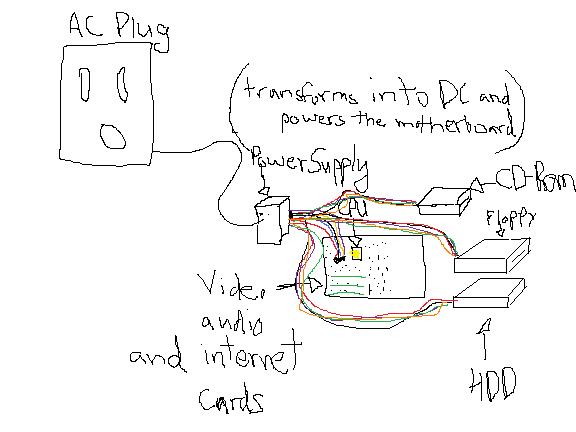 AC Plug
(transforms into DC and
powers the motherboard)
Power Supply
CD-Rom
CPU
Floppy
Video,
audio
and internet
cards
HDD